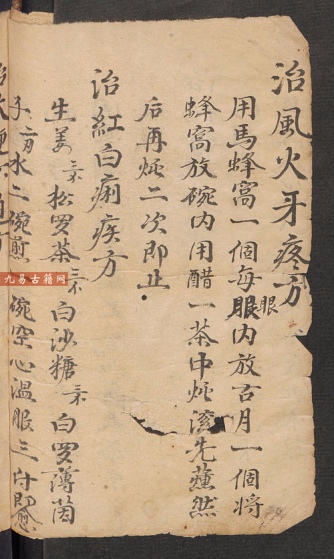 治風火牙疼方
用馬蜂窩一個每服眼内放古月一個將
蜂窩放碗内用醋一茶中炖滚先薰然
后再炖二次即止
治紅白痢疾方
生姜三 松罗茶三 白沙糖三 白罗薄茵
水二碗煎 碗空心温服三付即愈
九易古籍网